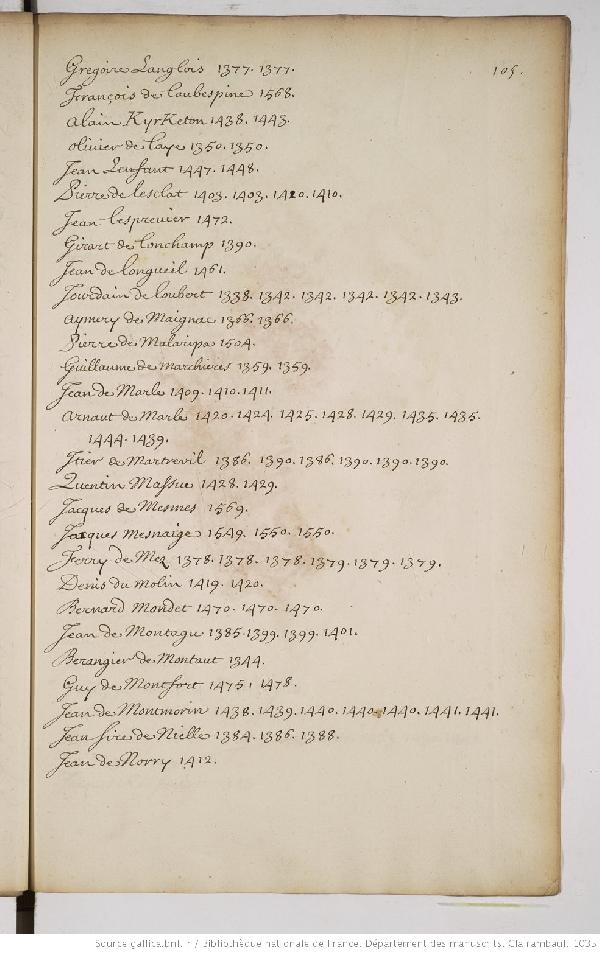 105.
Gregoire Langlois 1377. 1377.
François de Laubespine 1568.
Alain KyrKeton 1438. 1443.
Olivier de Laye 1350. 1350.
Jean Lenfant 1447. 1448.
Pierre de Lesclat 1403. 1403. 1410. 1410.
Jean Lesprevier 1472.
Girart de Lonchamp 1390.
Jean de Longueil 1461.
Jourdain de Loubert 1338. 1342. 1342. 1342. 1342. 1343.
Aymery de Maignac 1366. 1366.
Pierre de Malaripa 1504.
Guillaume de Marchieres 1359. 1359.
Jean de Marle 1409. 1410. 1411.
Arnaut de Marle 1420. 1424. 1425. 1428. 1429. 1435. 1435.
1444. 1439.
Itier de Martrevil 1386. 1390. 1386. 1390. 1390. 1390.
Quentin Massue 1428. 1429.
Jacques de Mesmes 1569.
Jacques Mesnaige 1549. 1550. 1550.
Ferry de Mez 1378. 1378. 1378. 1379. 1379. 1379.
Denis du Molin 1419. 1420.
Bernard Mondet 1470. 1470. 1470.
Jean de Montagu 1385. 1399. 1399. 1401.
Berangier de Montaut 1344.
Guy de Montfort 1475. 1478.
Jean de Montmorin 1438. 1439. 1440. 1440. 1440. 1441. 1441.
Jean sire de Nielle 1384. 1386. 1388.
Jean de Norry 1412.
Source gallica.bnf.fr / Bibliothèque nationale de France. Département des manuscrits. Clairambault 1035